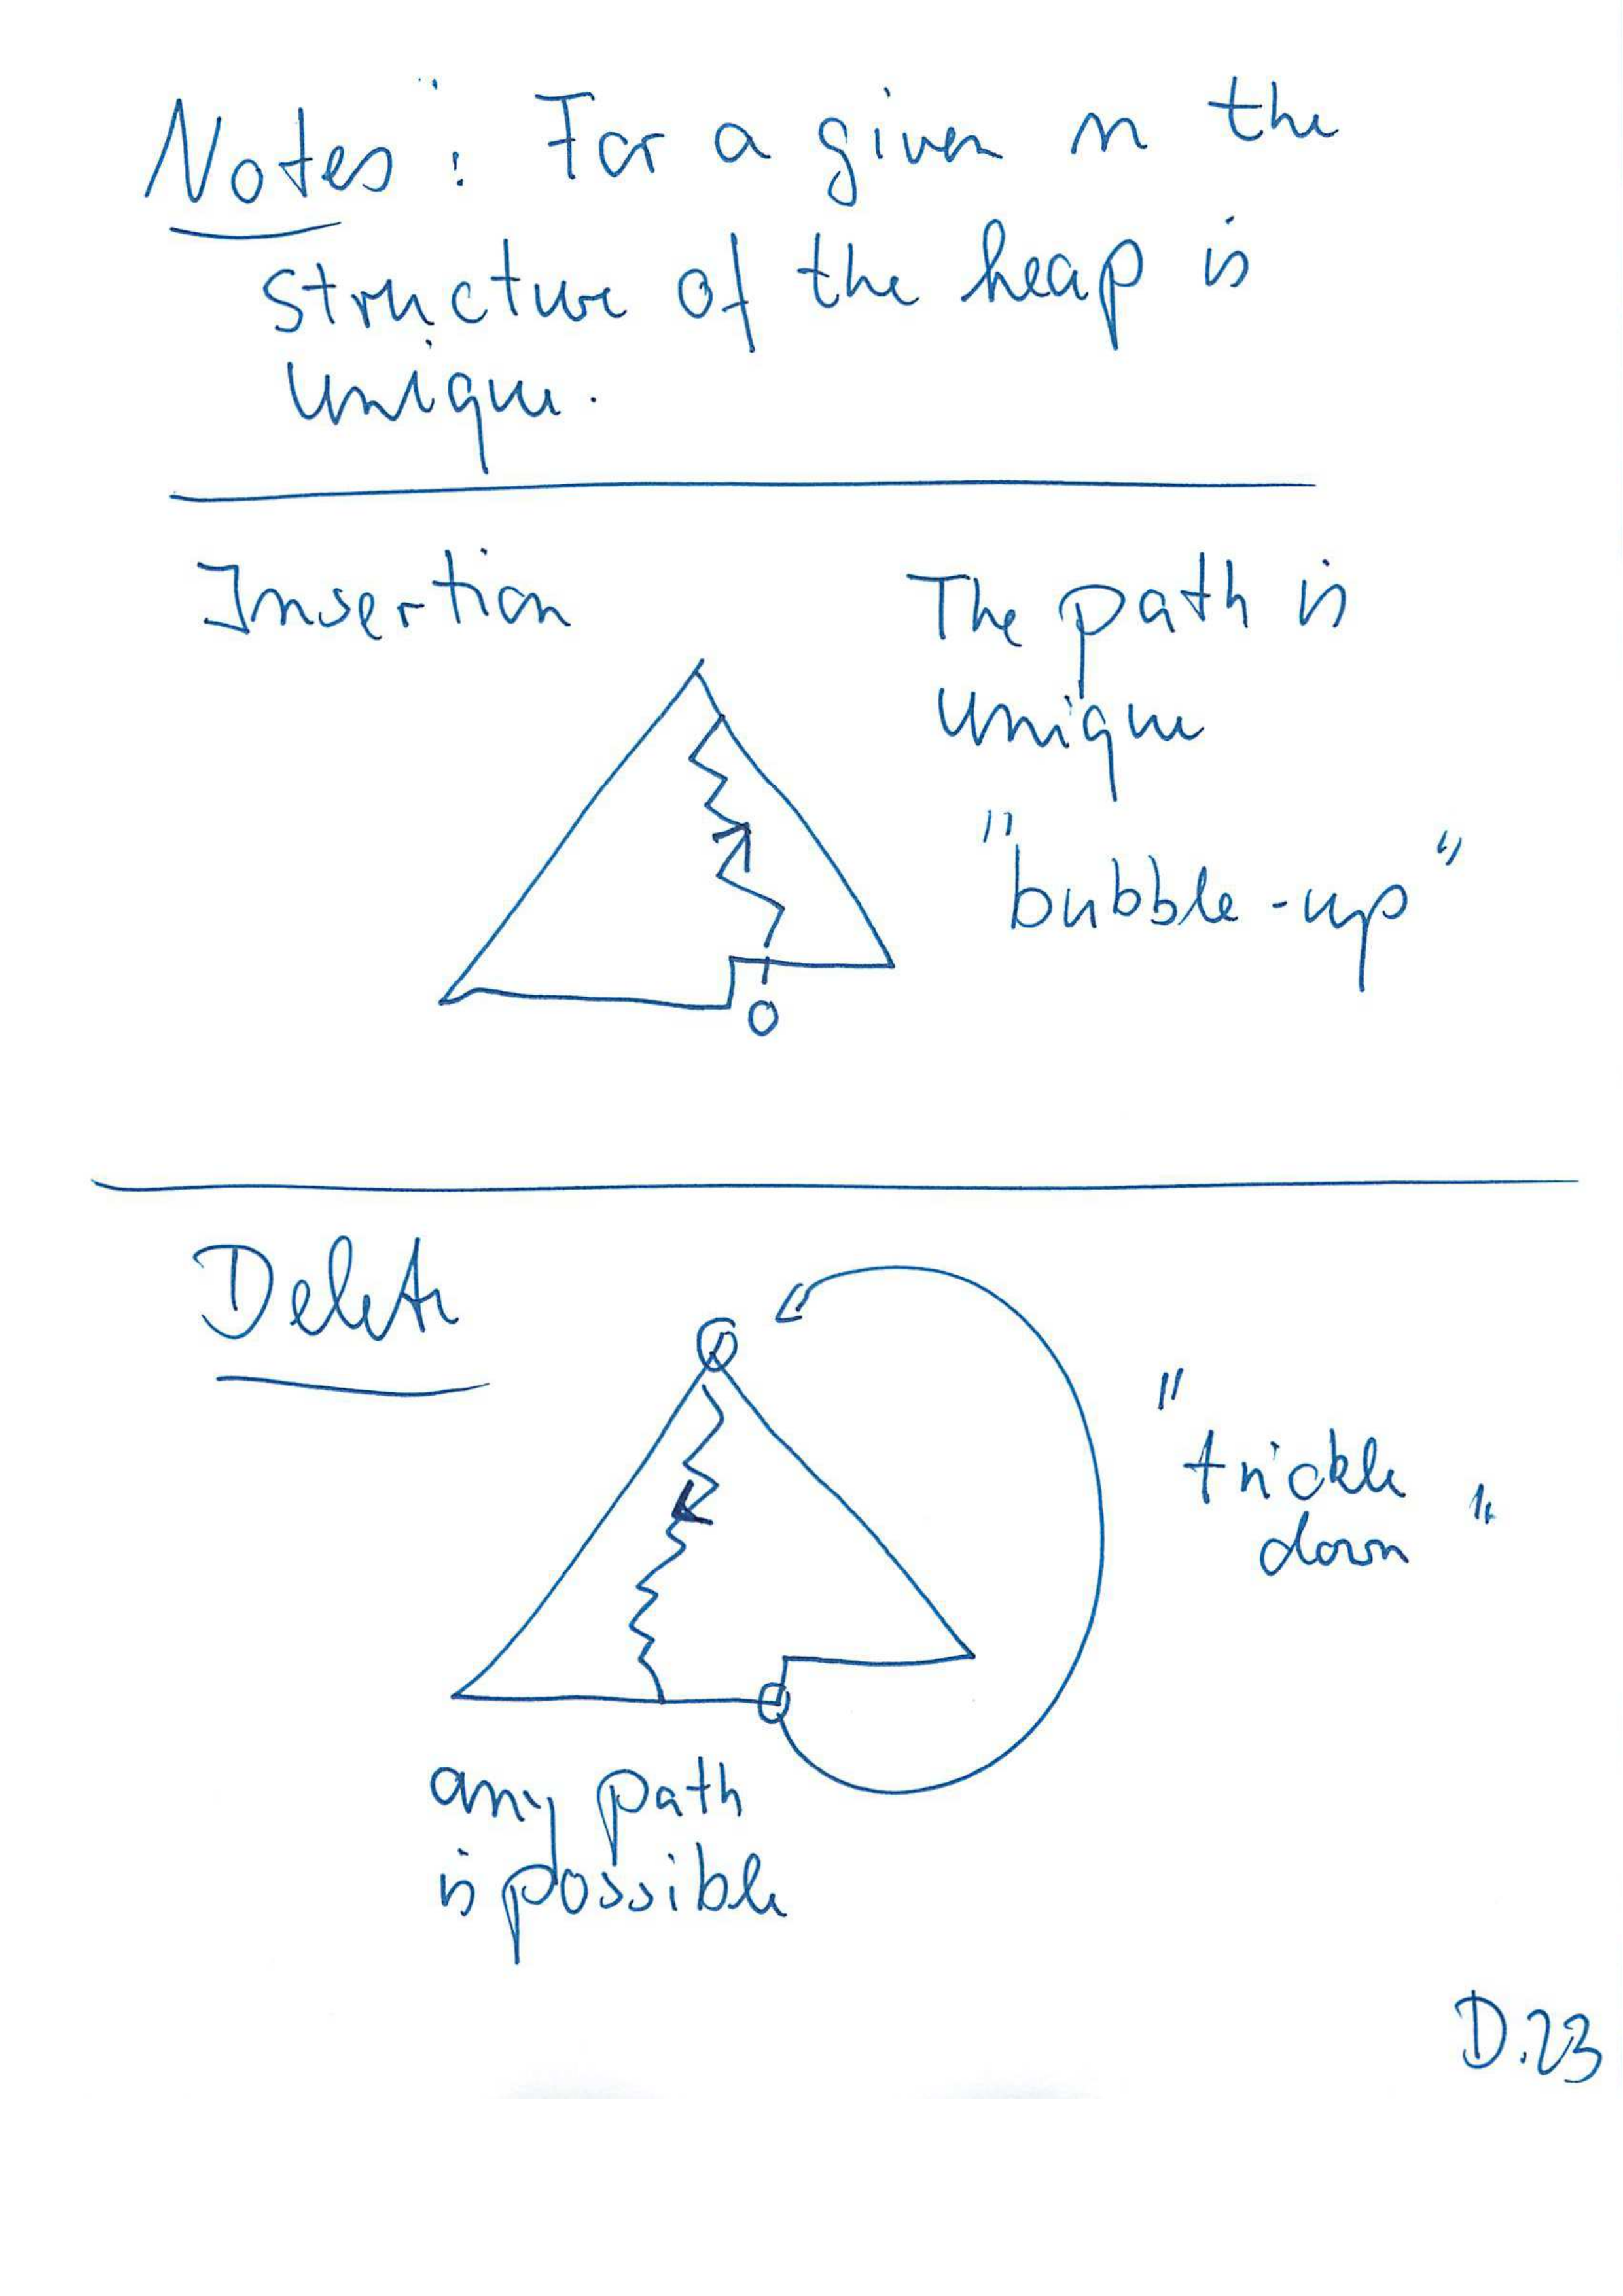 Notes: For a given n the
structure of the heap is
unique.
Insertion
The path is
unique
"bubble-up"
Delete
"trickle
down"
any path
is possible
D.23